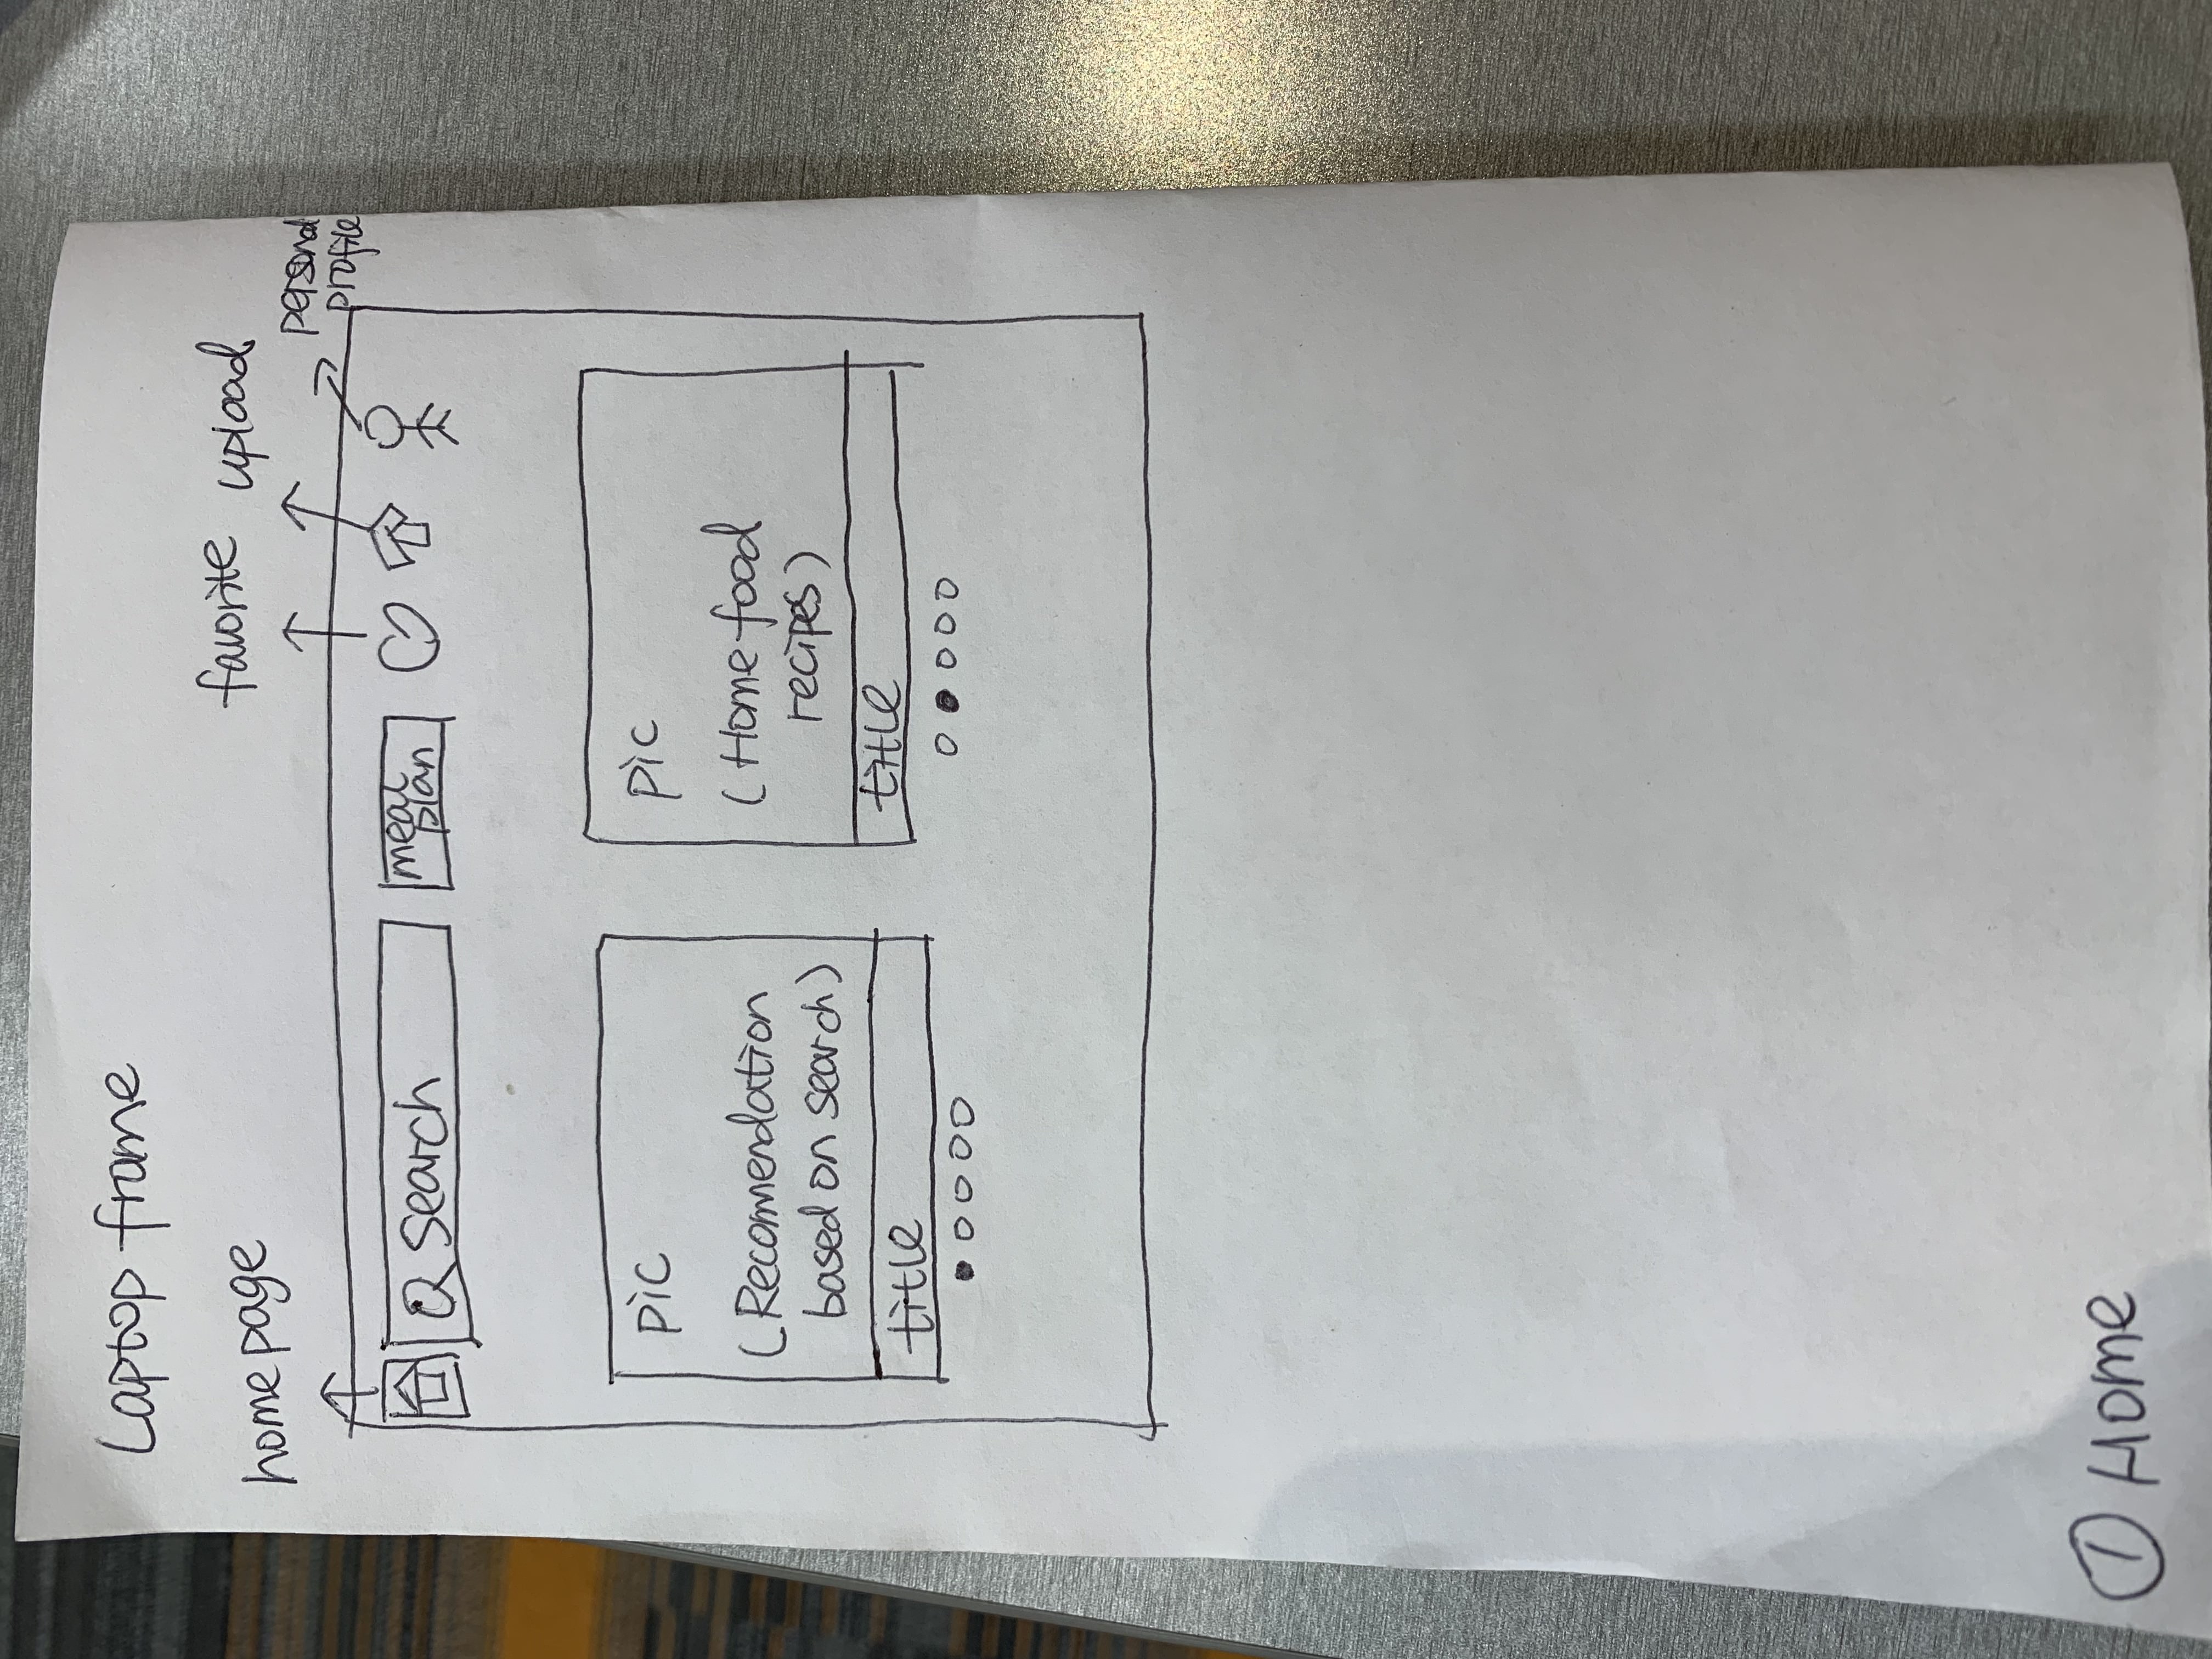 Laptop frame
homepage
favorite
upload
personal
profile
Search
meal
plan
pic
(Recomendation
based on search)
title
pic
(Home food
recipes)
title
① Home